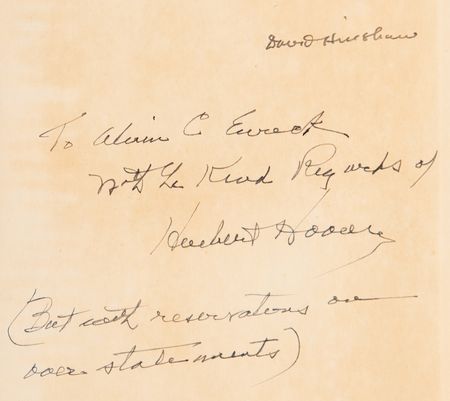 David Hinshaw
To Alvin C Eurich
With the Kind Regards of
Herbert Hoover
(But with reservations on
over statements)